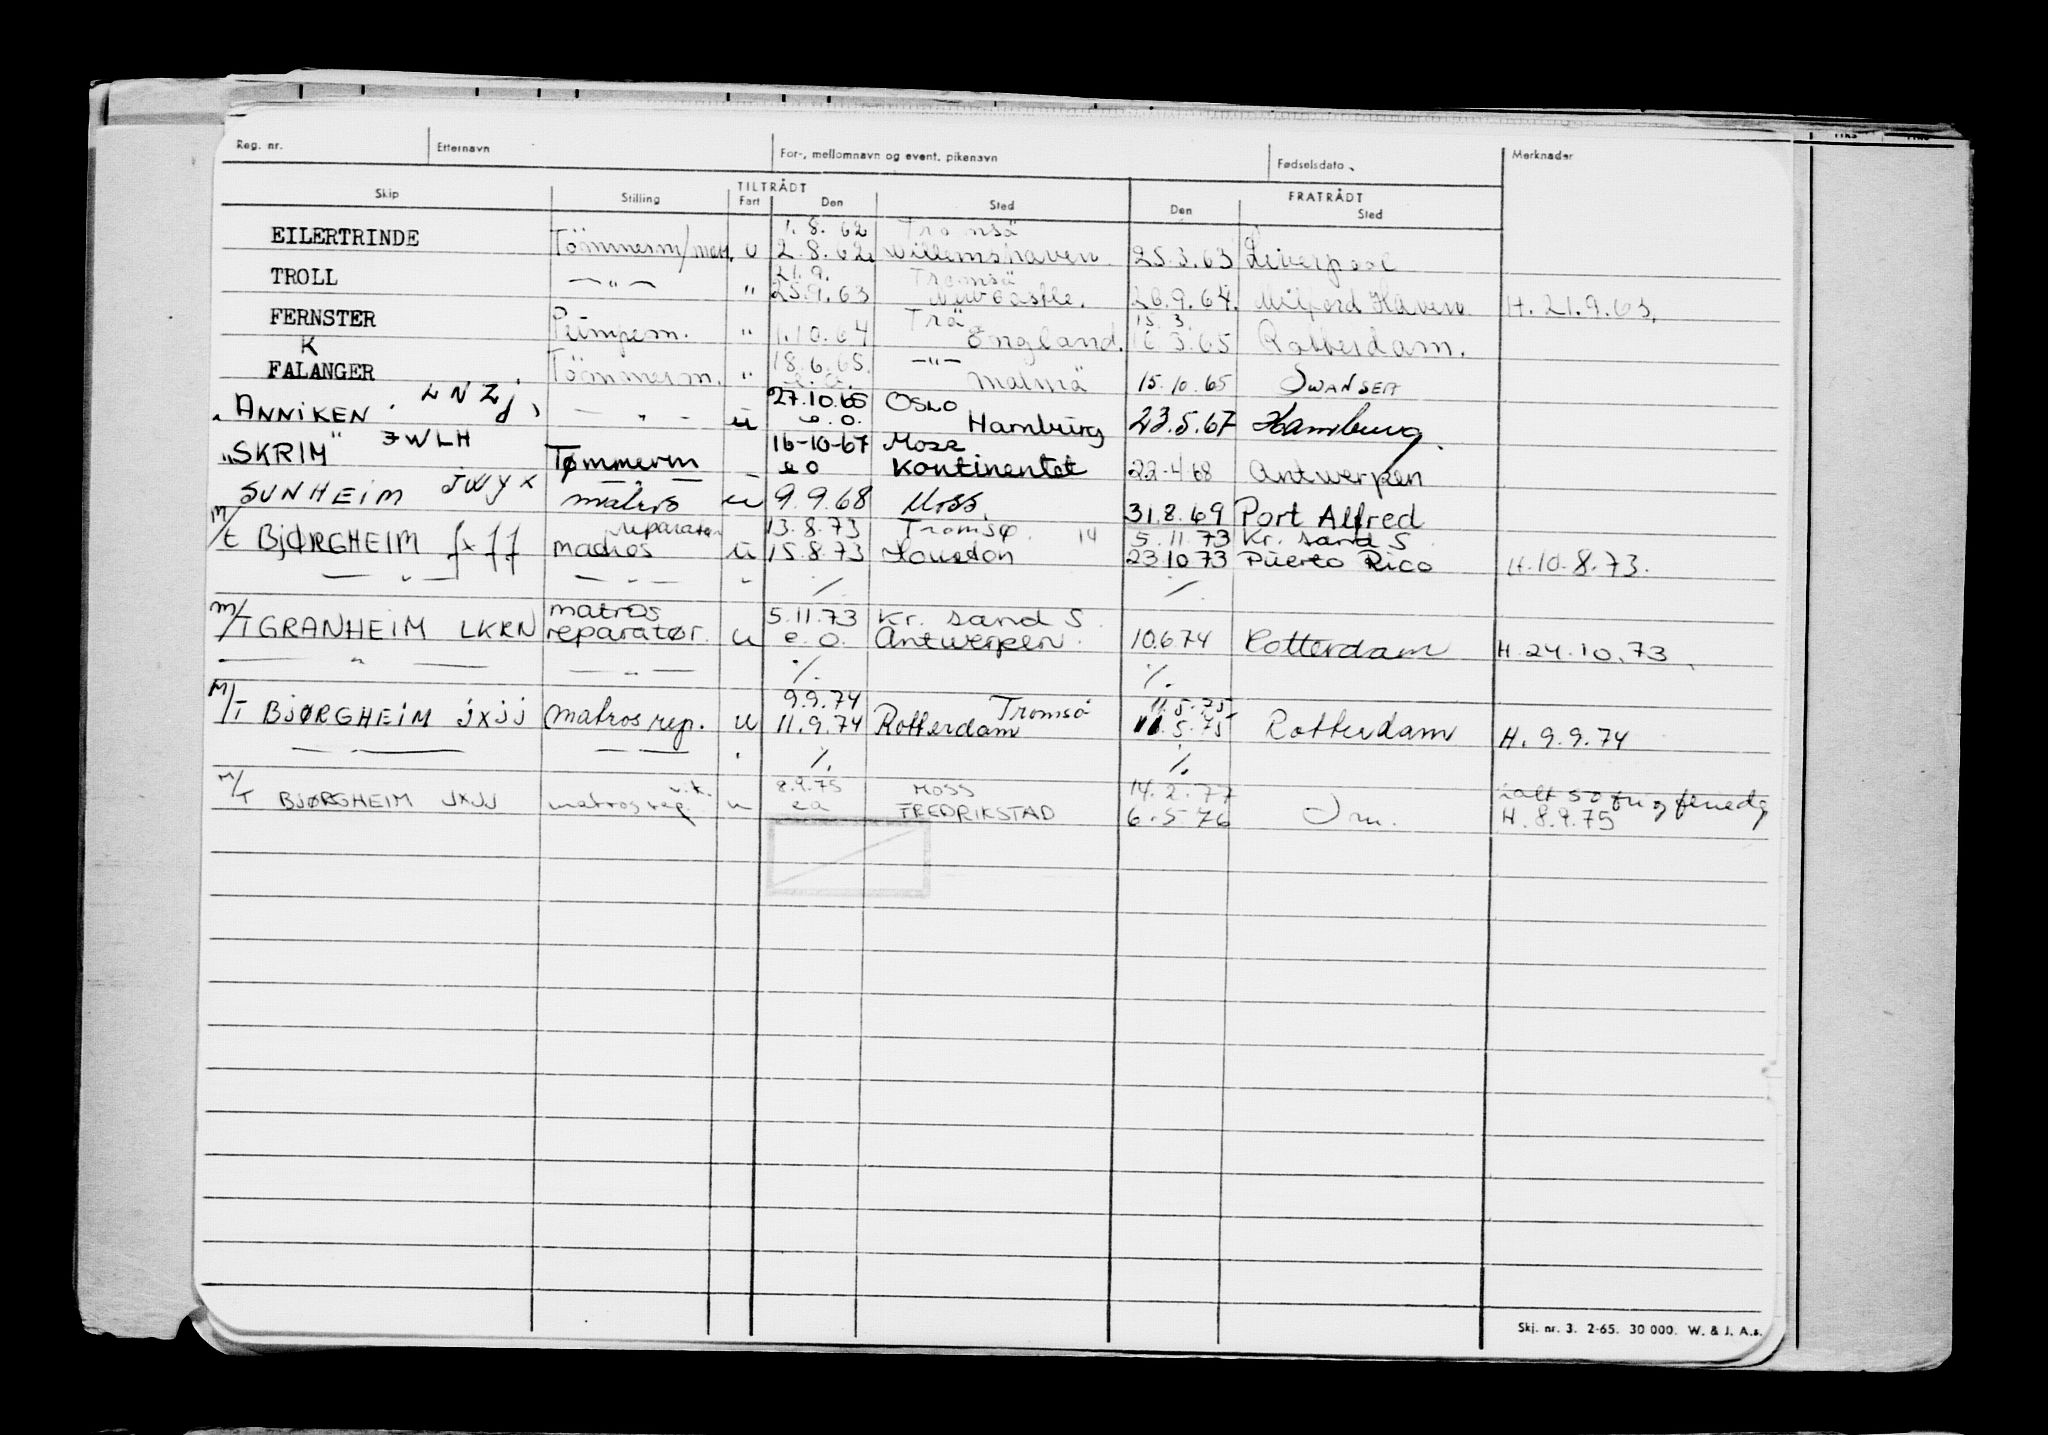 Reg. nr. Etternavn For-, mellomnavn og event. pikenavn Fødselsdato Merknader
TILTRÅDT FRATRÅDT
Skip Stilling Fart Den Sted Den Sted
1.8.62 Tromsä
EILERTRINDE Tömmerm/mat. u 2.8.62 Willemshaven 25.3.63 Liverpool
21.9. Tromsä
TROLL — " — " 25.9.63 Newcastle. 20.9.64. Milford Haven H. 21.9.63.
Trä 15.3.
FERNSTER Pümpem. " 1.10.64 England. 16.3.65 Rotterdam.
K 18.6.65. —"—
FALANGER Tömmerm. " e.o. Malmä 15.10.65 SWANSEA
27.10.65 OSLO
"ANNIKEN" LNZj — " — u e.o. Hamburg 23.5.67 Hamburg.
16-10-67 Moss
"SKRIM" JWLH Tømmerm — eo Kontinentet 22-4-68 Antwerpen
SUNHEIM JWYX matros u 9.9.68 Moss. 31.8.69 Port Alfred
reparatør 13.8.73 Tromsø 14 5.11.73 Kr. sand S
M/t BJØRGHEIM jxjj madros u 15.8.73 Houston 23.10.73 Püerto Rico H.10.8.73.
— " — — " — " /. /.
matros 5.11.73 Kr. sand S.
m/T GRANHEIM LKKN reparatør. u e.o. Antwerpen. 10.6.74 Rotterdam H.24.10.73.
— " — — " — /. /.
9.9.74 Tromsö 11.5.75
M/T BJØRGHEIM jxjj matros rep. u 11.9.74 Rotterdam 11.5.75 Rotterdam H. 9.9.74
— — — — " /. /.
v.k. 8.9.75 MOSS 14.2.77
M/T BJØRGHEIM JXJJ matros rep. u ea FREDRIKSTAD 6.5.76 H. 8.9.75
Skj. nr. 3. 2-65. 30 000. W. & J. A.s.